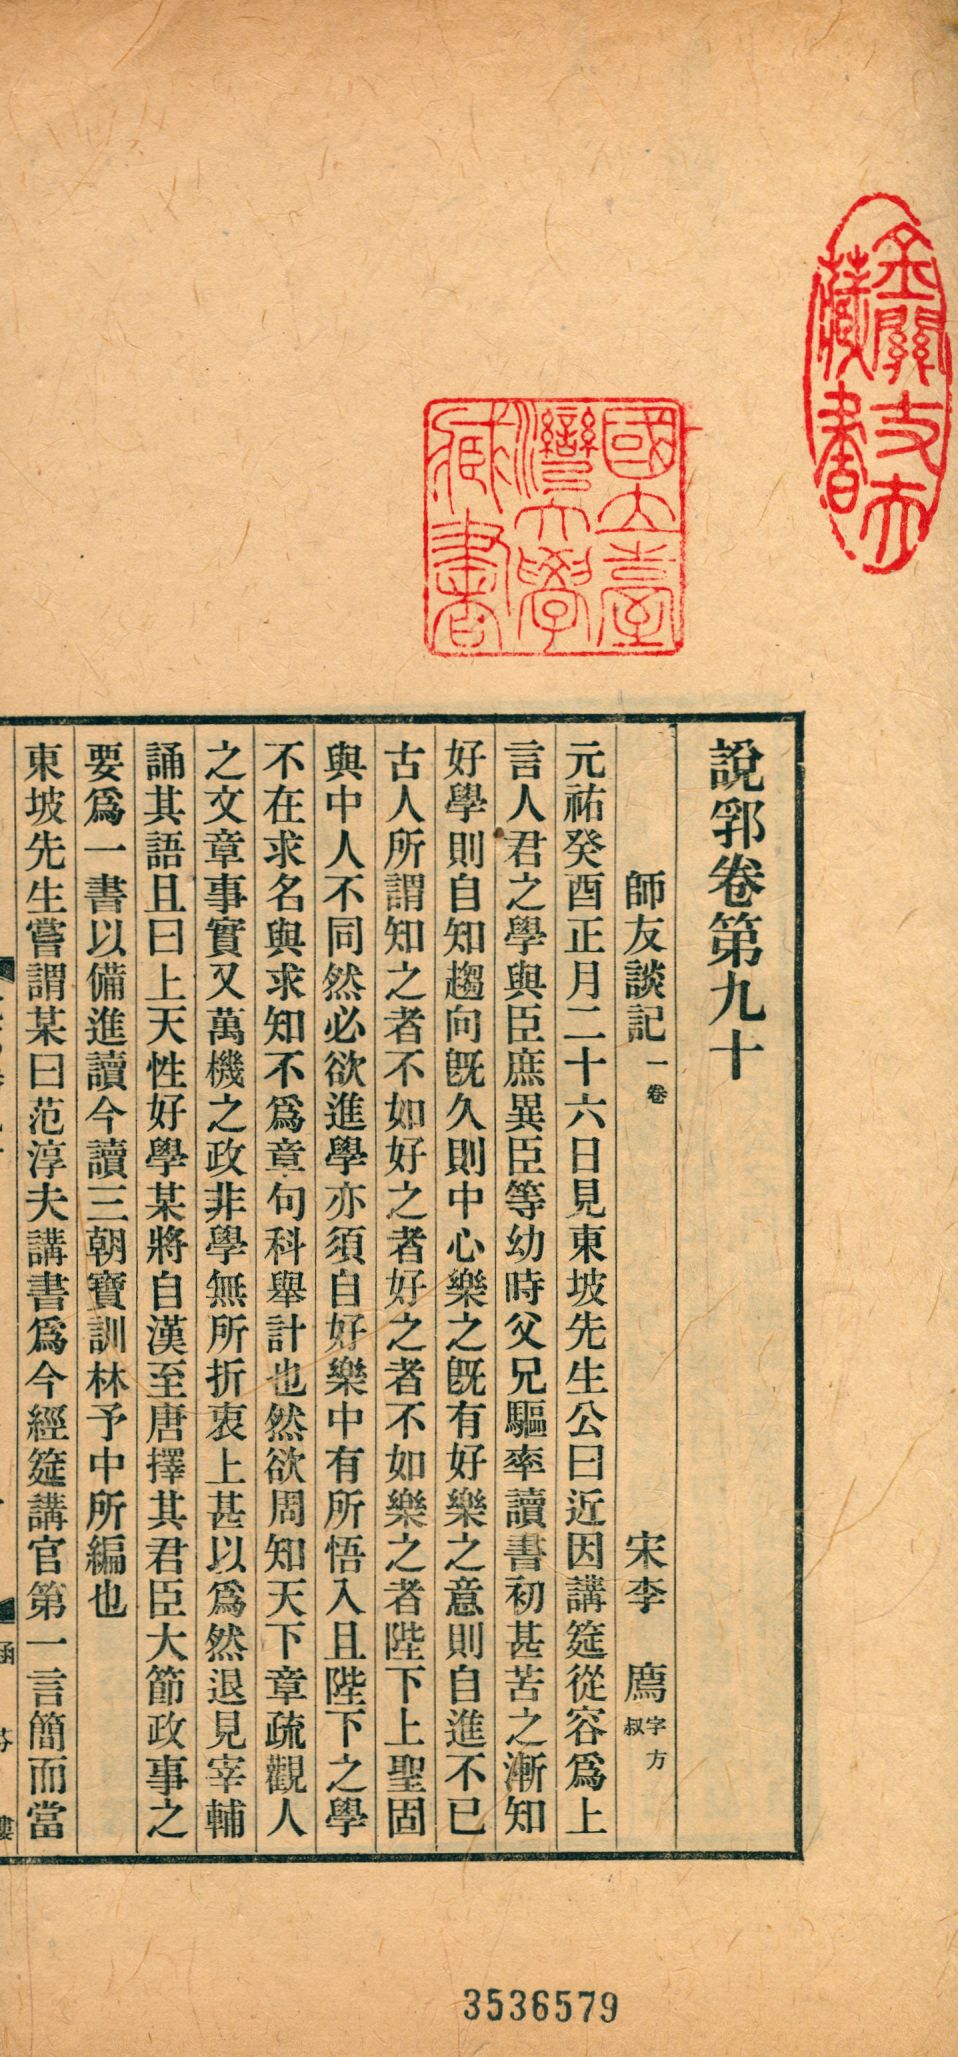 說郛卷第九十
師友談記一卷 宋李 廌字方叔
元祐癸酉正月二十六日見東坡先生公曰近因講筵從容爲上
言人君之學與臣庶異臣等幼時父兄驅率讀書初甚苦之漸知
好學則自知趨向旣久則中心樂之旣有好樂之意則自進不已
古人所謂知之者不如好之者好之者不如樂之者陛下上聖固
與中人不同然必欲進學亦須自好樂中有所悟入且陛下之學
不在求名與求知不爲章句科舉計也然欲周知天下章疏觀人
之文章事實又萬機之政非學無所折衷上甚以爲然退見宰輔
誦其語且曰上天性好學某將自漢至唐擇其君臣大節政事之
要爲一書以備進讀今讀三朝寶訓林予中所編也
東坡先生嘗謂某曰范淳夫講書爲今經筵講官第一言簡而當
國立臺
灣大學
臧書
藏書
3536579